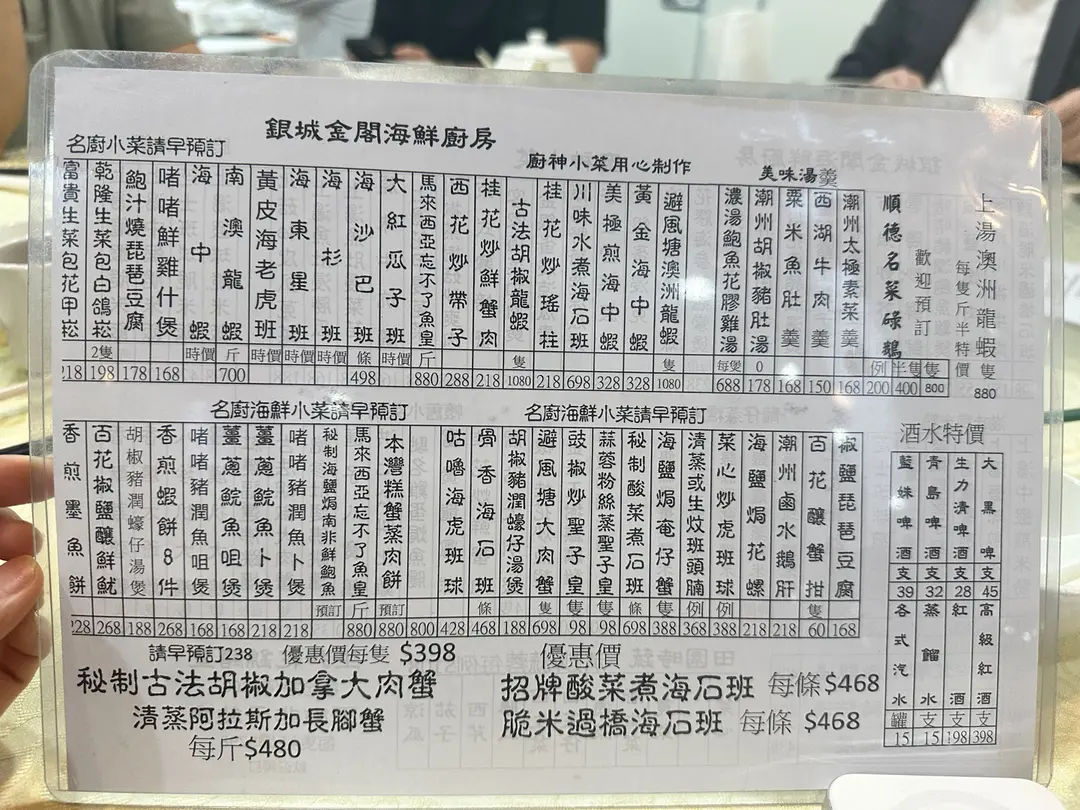 銀城金閣海鮮廚房
名廚小菜請早預訂
富貴生菜包花甲崧 218
乾隆生菜包白鴿崧 2隻 198
鮑汁燒琵琶豆腐 178
啫啫鮮雞什煲 168
海中蝦 時價
南澳龍蝦 斤 700
黃皮海老虎班 時價
海東星班 時價
海杉班 時價
海沙巴班 條 498
大紅瓜子班 時價
馬來西亞忘不了魚皇 斤 880
西花炒帶子 288
桂花炒鮮蟹肉 218
古法胡椒龍蝦 隻 1080
廚神小菜用心制作
桂花炒瑤柱 218
川味水煮海石班 698
美極煎海中蝦 328
黃金海中蝦 328
避風塘澳洲龍蝦 隻 1080
美味湯羹
濃湯鮑魚花膠雞湯 每煲 688
潮州胡椒豬肚湯 0 178
粟米魚肚羹 168
西湖牛肉羹 150
潮州太極素菜羹 168
順德名菜碌鵝
歡迎預訂
例 200 半隻 400 隻 800
每隻斤半特價
上湯澳洲龍蝦 隻 880
名廚海鮮小菜請早預訂
香煎墨魚餅 228
百花椒鹽釀鮮魷 268
胡椒豬潤蠔仔湯煲 188
香煎蝦餅8件 268
啫啫豬潤魚咀煲 168
薑蔥鯇魚咀煲 168
薑蔥鯇魚卜煲 218
啫啫豬潤魚卜煲 218
秘制海鹽焗南非鮮鮑魚 預訂
馬來西亞忘不了魚皇 斤 880
本灣糕蟹蒸肉餅 預訂 880
800
咕嚕海虎班球 428
骨香海石班 條 468
名廚海鮮小菜請早預訂
胡椒豬潤蠔仔湯煲 188
避風塘大肉蟹 隻 698
豉椒炒聖子皇 隻 98
蒜蓉粉絲蒸聖子皇 隻 98
秘制酸菜煮海石班 條 698
海鹽焗奄仔蟹 隻 388
清蒸或生炆班頭腩 例 368
菜心炒虎班球 例 388
海鹽焗花螺 218
潮州鹵水鵝肝 218
百花釀蟹拑 隻 60
椒鹽琵琶豆腐 168
酒水特價
藍妹啤酒 支 39
青島啤酒 支 32
生力清啤酒 支 28
大黑啤 支 45
各式汽水 罐 15
蒸餾水 支 15
紅酒 支 198
高級紅酒 支 398
請早預訂238 優惠價每隻 $398
秘制古法胡椒加拿大肉蟹
清蒸阿拉斯加長腳蟹
每斤$480
優惠價
招牌酸菜煮海石班 每條$468
脆米過橋海石班 每條 $468